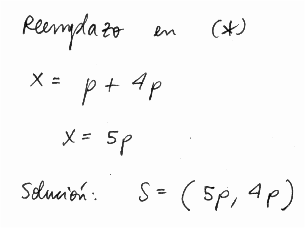 Reemplazo en (*)
X = p + 4p
X = 5p
Solución: S = ( 5p, 4p )